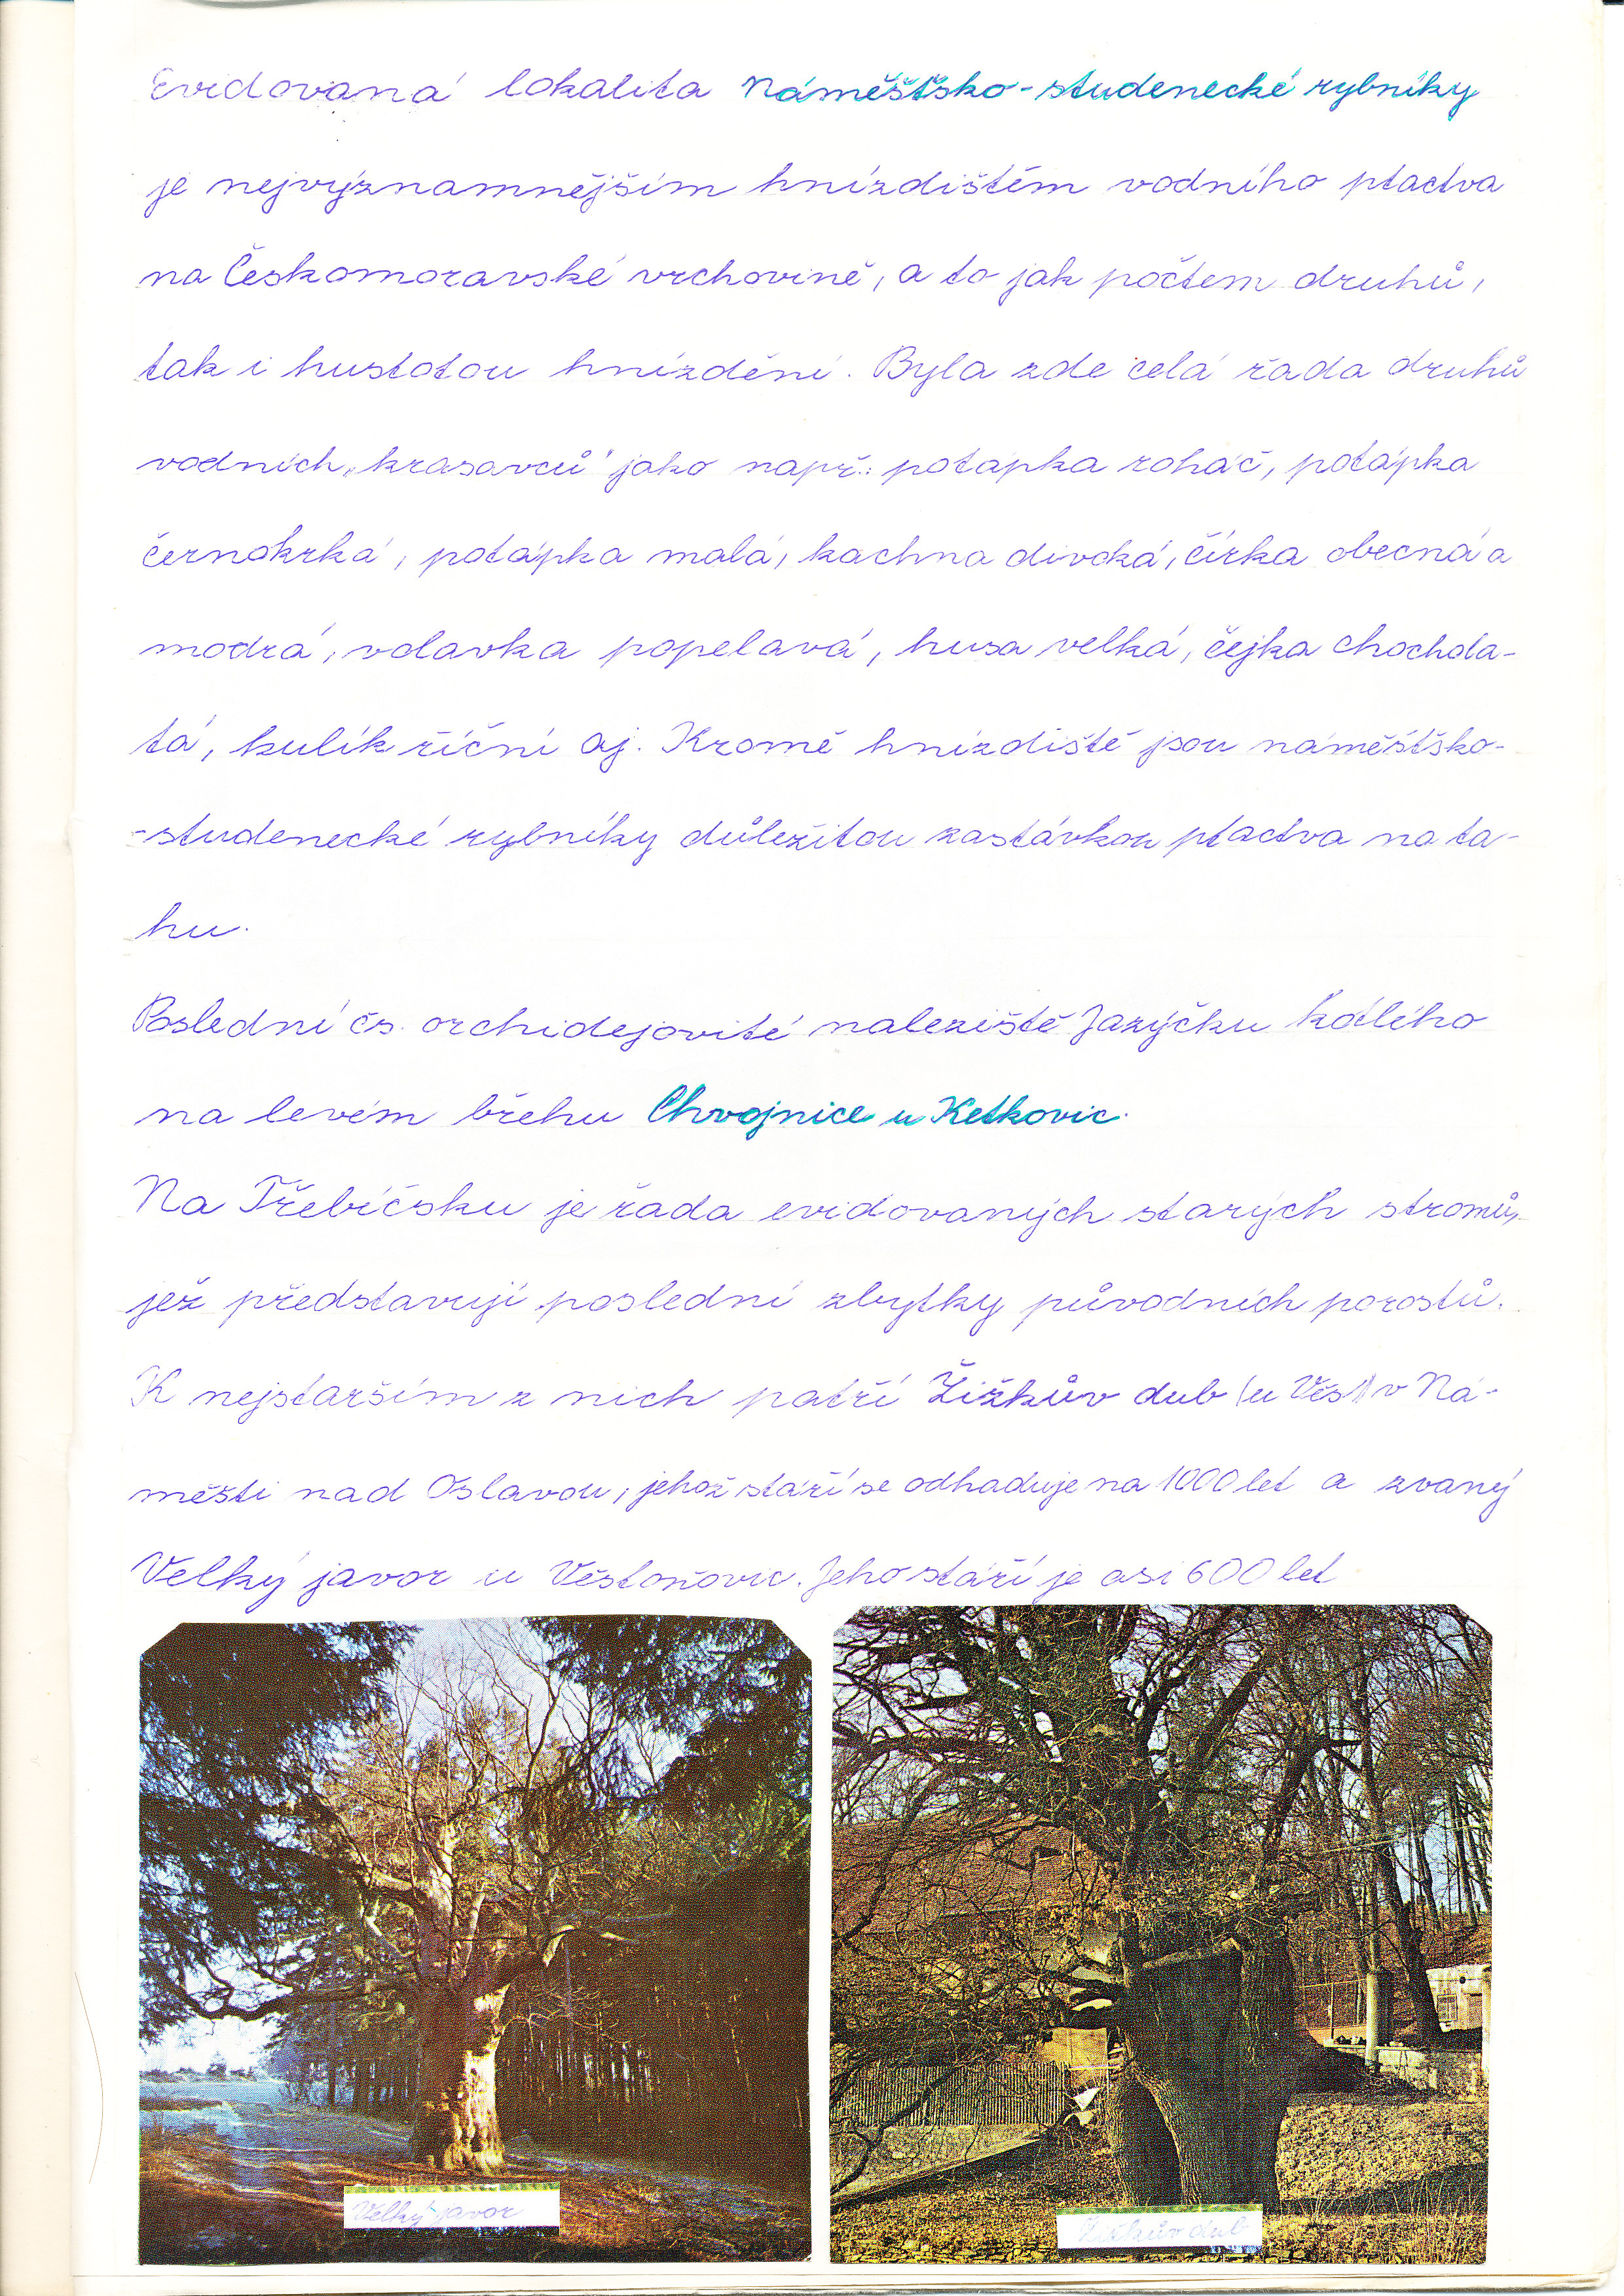 Evidovaná lokalita Náměšťsko-studenecké rybníky
je nejvýznamnějším hnízdištěm vodního ptactva
na Českomoravské vrchovině, a to jak počtem druhů,
tak i hustotou hnízdění. Byla zde celá řada druhů
vodních „krasavců" jako např.: potápka roháč, potápka
černokrká, potápka malá, kachna divoká, čírka obecná a
modrá, volavka popelavá, husa velká, čejka chochola-
tá, kulík říční aj. Kromě hnízdiště jsou náměšťsko-
-studenecké rybníky důležitou zastávkou ptactva na ta-
hu.
Poslední čs. orchidejovité naleziště Jazýčku
na levém břehu Chvojnice u Ketkovic.
Na Třebíčsku je řada evidovaných starých stromů,
jež představují poslední zbytky původních porostů.
K nejstarším z nich patří Žižkův dub (u Věs) v Ná-
měšti nad Oslavou, jehož stáří se odhaduje na 1000 let a zvaný
Velký javor u Věstoňovic. Jeho stáří je asi 600 let
Velký javor
Žižkův dub